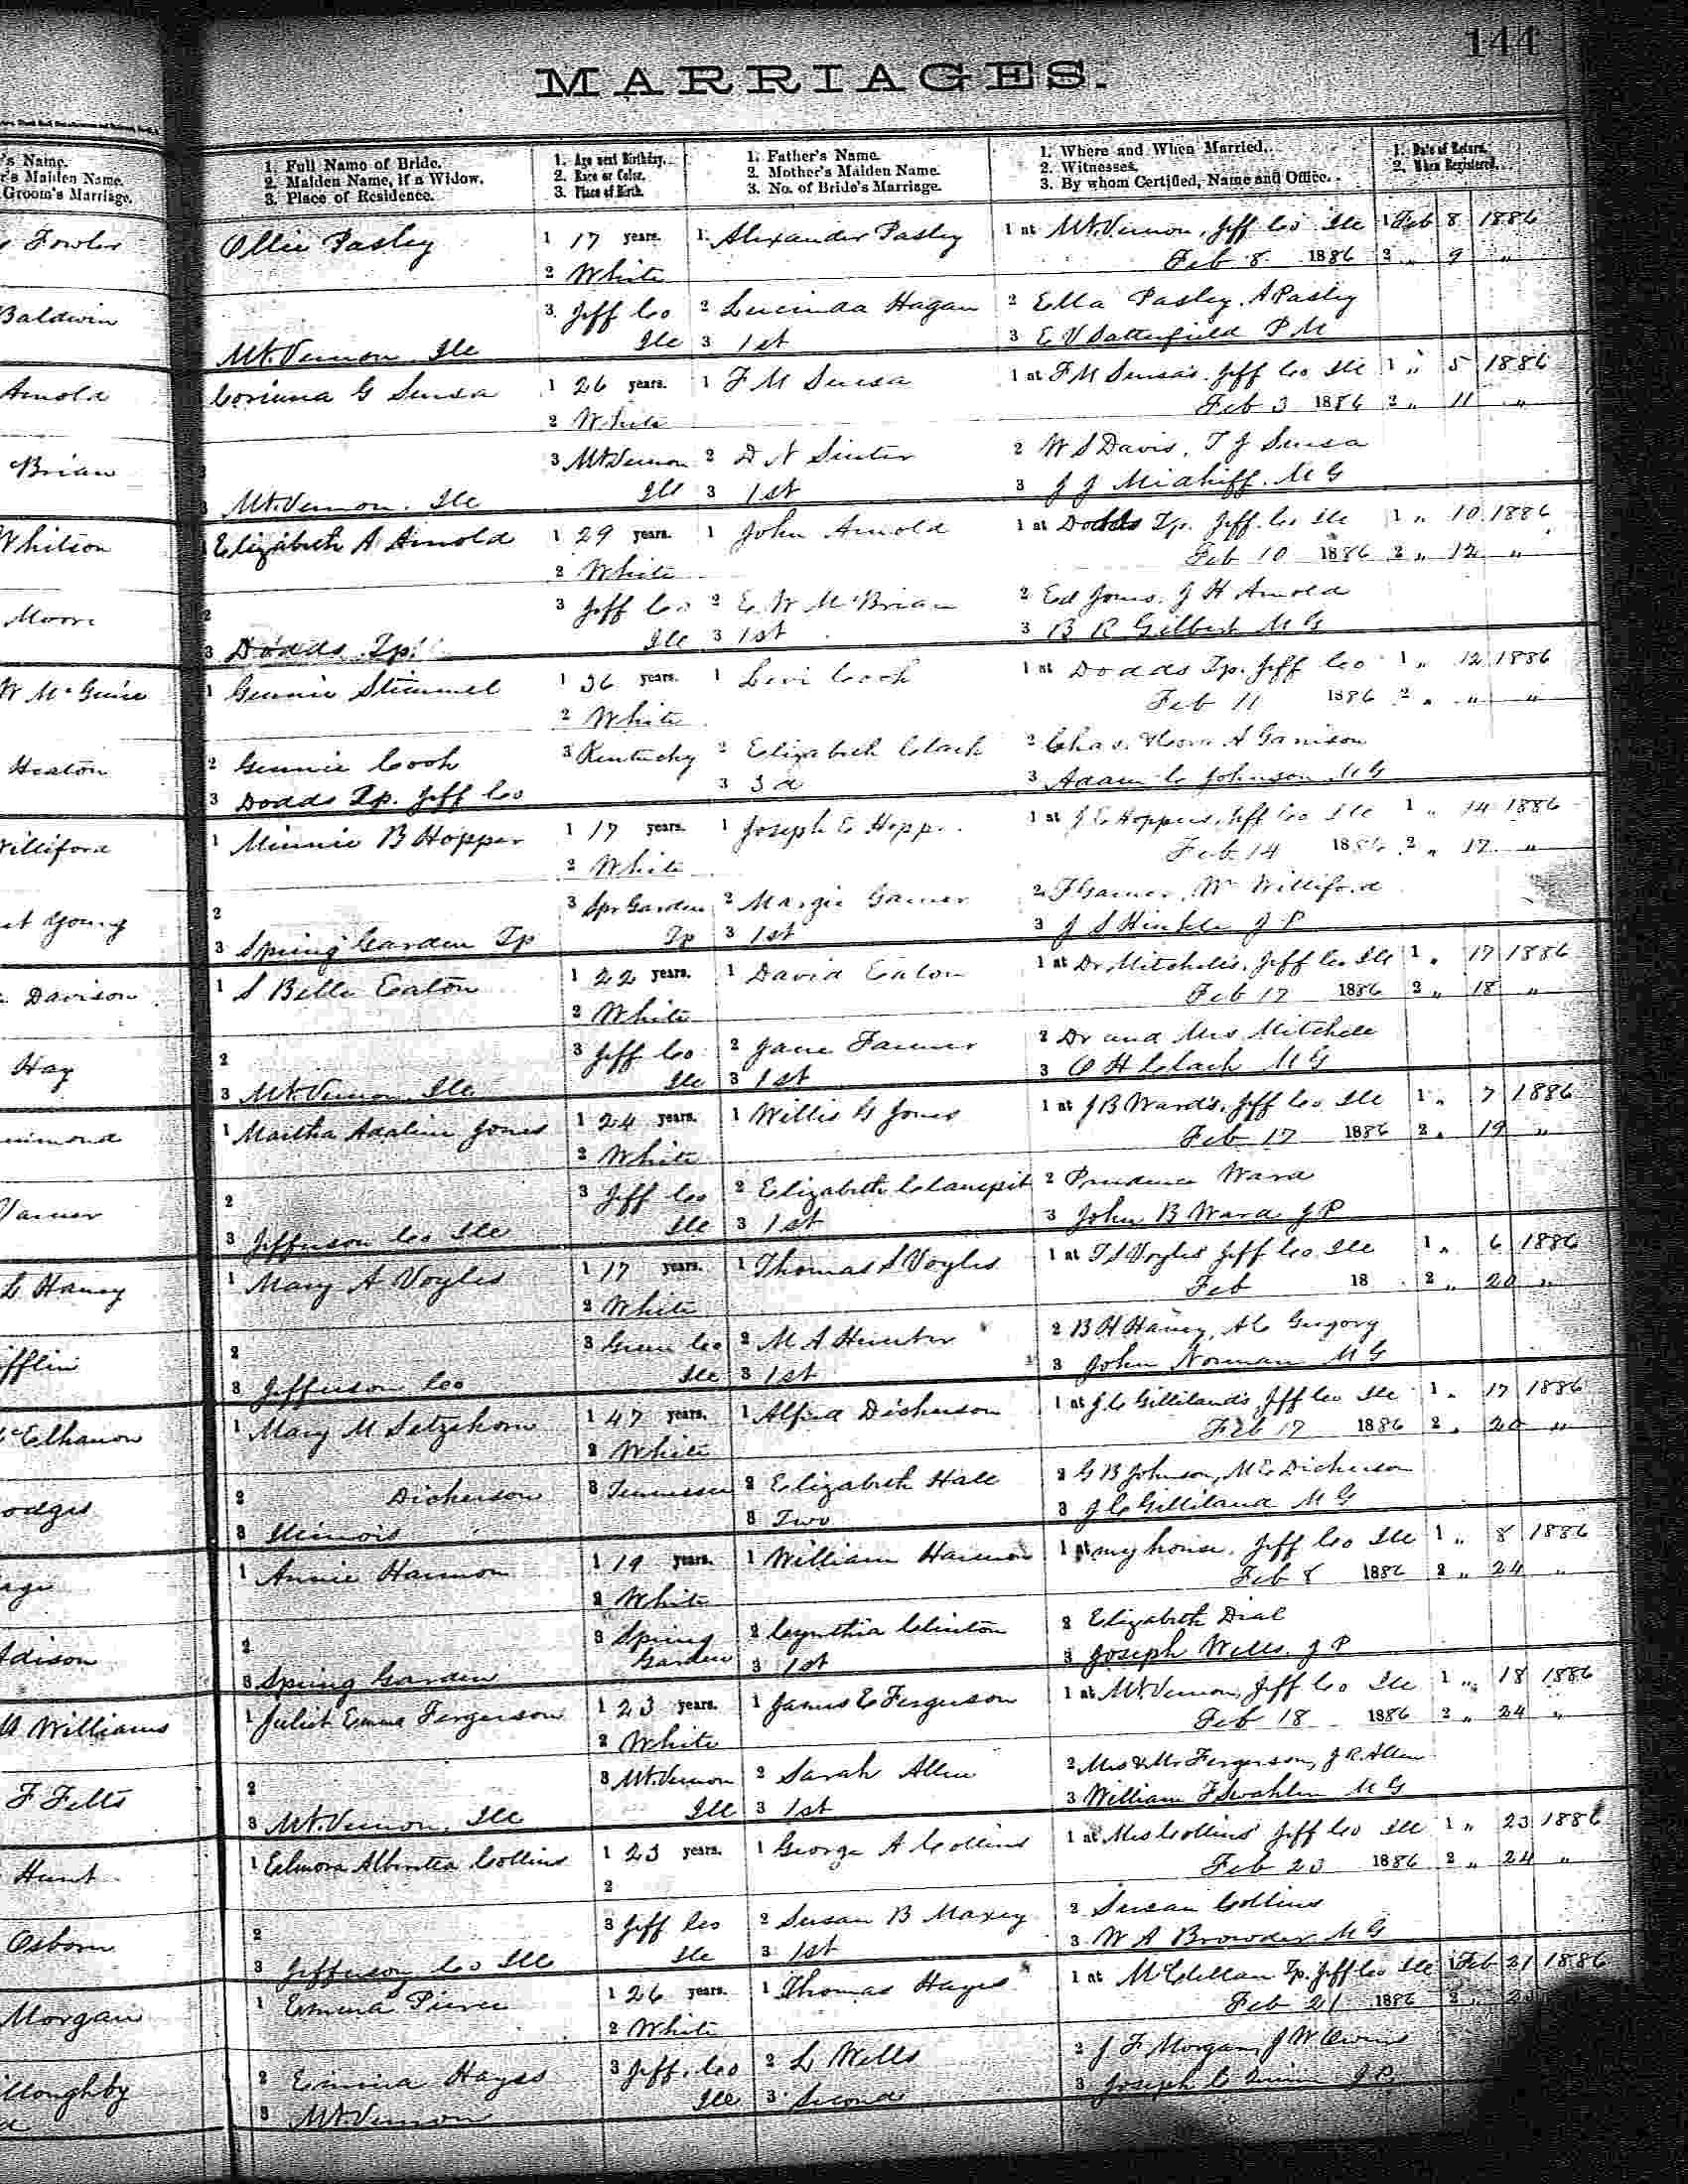 144
MARRIAGES.
's Name.
r's Maiden Name.
Groom's Marriage.
1. Full Name of Bride.
2. Maiden Name, if a Widow.
3. Place of Residence.
1. Age next Birthday.
2. Race or Color.
3. Place of Birth.
1. Father's Name.
2. Mother's Maiden Name.
3. No. of Bride's Marriage.
1. Where and When Married.
2. Witnesses.
3. By whom Certified, Name and Office.
1. Date of Return.
2. When Registered.
Fowler Ollie Pasley 1 17 years. 1 Alexander Pasley 1 at Mt. Vernon, Jeff Co Ill 1 Feb 8 1886
2 White Feb 8 1886 2 " 9 "
Baldwin 3 Jeff Co 2 Lucinda Hagan 2 Ella Pasley, A Pasley
Mt. Vernon Ill Ill 3 1st 3 E V Satterfield P M
Arnold Corinna G Sursa 1 26 years. 1 F M Sursa 1 at F M Sursa's. Jeff Co Ill 1 " 5 1886
2 White Feb 3 1886 2 " 11 "
Brian 3 Mt Vernon 2 D N 2 W S Davis, T J Sursa
3 Mt. Vernon. Ill Ill 3 1st 3 J J M G
Whitson 1 Elizabeth A Arnold 1 29 years. 1 John Arnold 1 at Dodds Tp. Jeff. Co Ill 1 " 10 1886
2 White Feb 10 1886 2 " 12 "
Moore 2 3 Jeff Co 2 E. W McBrian 2 Ed Jones. J H Arnold
3 Dodds Tp. Ill 3 1st 3 B R Gilbert M G
W McGuire 1 Gennie Stimmel 1 36 years. 1 Levi Cook 1 at Dodds Tp. Jeff Co 1 " 12 1886
2 White Feb 11 1886 2 " " "
Heaton 2 Gennie Cook 3 Kentucky 2 Elizabeth Clark 2 Chas. A Garrison
3 Dodds Tp. Jeff Co 3 3d 3 Adam C Johnson M G
Williford 1 Minnie B Hopper 1 17 years. 1 Joseph E 1 at J E Hoppers, Jeff Co Ill 1 " 14 1886
2 White Feb 14 1886 2 " 17 "
Young 2 3 Spr Garden 2 Margie Garner 2 F Garner, Wm Williford
3 Spring Garden Tp Tp 3 1st 3 J S Hinkle J P
Davison 1 S Belle Eaton 1 22 years. 1 David Eaton 1 at Dr. Mitchell's, Jeff Co Ill 1 " 17 1886
2 White Feb 17 1886 2 " 18 "
Hay 2 3 Jeff Co 2 Jane Farmer 2 Dr and Mrs Mitchell
3 Mt. Vernon Ill Ill 3 1st 3 C H Clark M G
1 Martha Adaline Jones 1 24 years. 1 Willis G Jones 1 at J B Ward's, Jeff Co Ill 1 " 7 1886
2 White Feb 17 1886 2 " 19 "
2 3 Jeff Co 2 Elizabeth Clampit 2 Prudence Ward
3 Jefferson Co Ill Ill 3 1st 3 John B Ward J P
L Haney 1 Mary A Voyles 1 17 years. 1 Thomas S Voyles 1 at T S Voyles Jeff Co Ill 1 " 6 1886
2 White Feb 18 2 " 20 "
2 3 Green Co 2 M A Hunter 2 B H Haney, A C Gregory
3 Jefferson Co Ill 3 1st 3 John Norman M G
McElhanon 1 Mary M Setzekorn 1 47 years. 1 Alfred Dickerson 1 at J C Gilliland's, Jeff Co Ill 1 " 17 1886
2 White Feb 17 1886 2 " 20 "
2 Dickerson 3 Tennessee 2 Elizabeth Hall 2 G B Johnson, M E Dickerson
3 Illinois 3 Two 3 J C Gilliland M G
1 Annie Harmon 1 19 years. 1 William Harmon 1 at my house. Jeff Co Ill 1 " 8 1886
2 White Feb 8 1886 2 " 24 "
2 3 Spring 2 Cynthia Clinton 2 Elizabeth Dial
3 Spring Garden Garden 3 1st 3 Joseph Wells, J P
Williams 1 Juliet Emma Fergerson 1 23 years. 1 James E Ferguson 1 at Mt. Vernon, Jeff Co Ill 1 " 18 1886
2 White Feb 18 1886 2 " 24 "
F Felts 2 3 Mt. Vernon 2 Sarah Allen 2 Mrs & Mr Fergerson, J R. Allen
3 Mt. Vernon, Ill Ill 3 1st 3 William F Swahlen M G
Hunt 1 Elmora Collins 1 23 years. 1 George A Collins 1 at Mrs Collins' Jeff Co Ill 1 " 23 1886
2 Feb 23 1886 2 " 24 "
Osborn 2 3 Jeff Co 2 Susan B Maxey 2 Susan Collins
3 Jefferson Co Ill Ill 3 1st 3 W A Browder M G
Morgan 1 Emma Pierce 1 26 years. 1 Thomas Hayes 1 at McClellan Tp. Jeff Co Ill 1 Feb 21 1886
2 White Feb 21 1886 2 "
2 Emma Hayes 3 Jeff. Co 2 L Wells 2 J F Morgan, J W Owens
3 Mt. Vernon Ill 3 Second 3 Joseph C J P